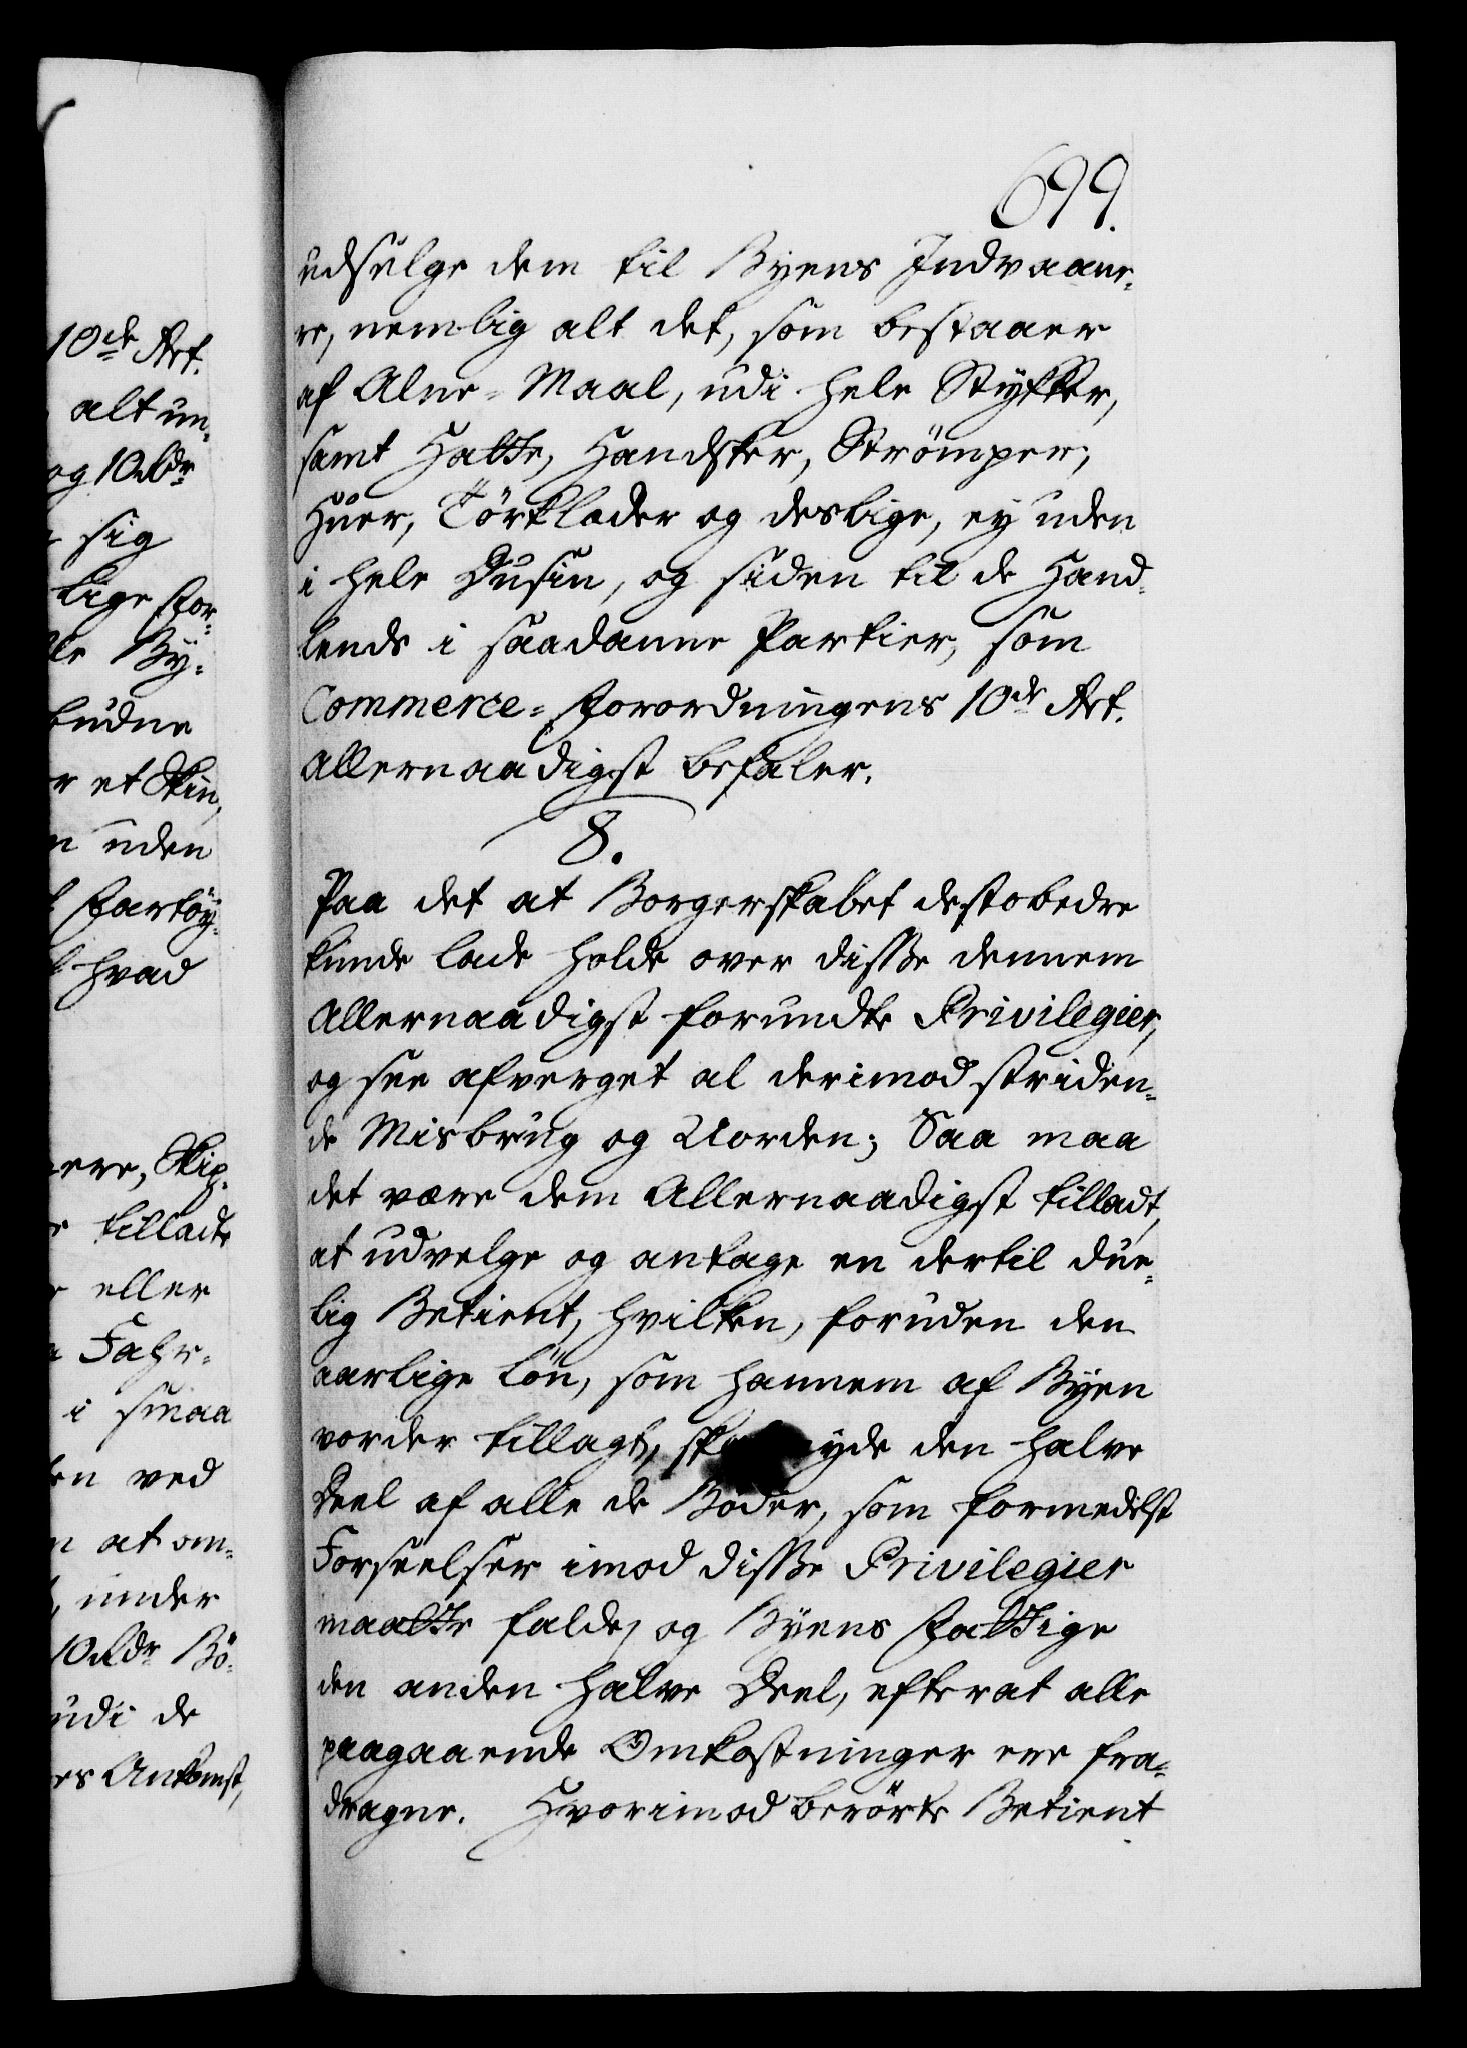 699.
udsælge dem til Byens Indvaane-
re, nemlig alt det, som bestaaer
af Alne-Maal, udi hele Stykker,
samt Hatte, Handsker, Strömper,
Huer, Törklæder og deslige, ey uden
i hele Dusin, og siden til de Hand-
lende i saadanne Partier, som
Commerce-Forordningens 10de Art.
Allernaadigst befaler.
8.
Paa det at Borgerskabet destobedre
kunde lade holde over disse dennem
Allernaadigst forundte Privilegier,
og see afverget al derimod striden-
de Misbrug og Uorden; Saa maa
det være dem Allernaadigst tilladt,
at udvelge og antage en dertil due-
lig Betient, hvilken, foruden den
aarlige Lön, som hannem af Byen
vorder tillagt, nyde den halve
Deel af alle de Böder, som formedelst
Forseelser imod disse Privilegier
maatte falde, og Byens Fattige
den anden halve Deel, efterat alle
paagaaende Omkostninger ere fra-
dragne. Hvorimod berörte Betient
10de Art.
alt un-
og 10 Rdr
sig
lige For-
By-
budne
et Skin,
uden
Fartöy-
hvad
Skip-
tilladte
eller
Fahr-
i smaa
ved
at om-
under
10 Rdr Bö-
udi de
Ankomst,